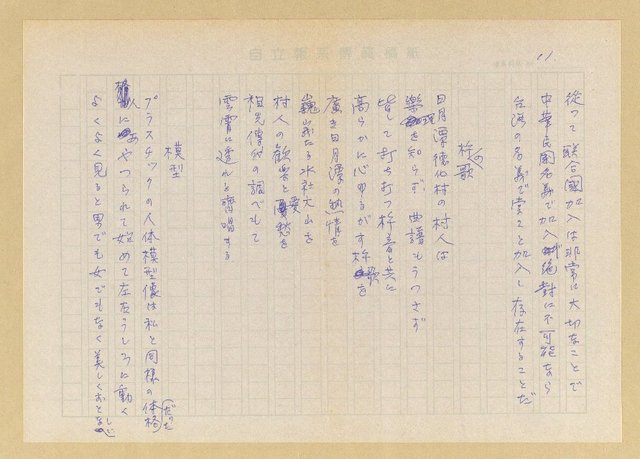 11.
従って聯合國加入は非常に大切なことで
中華民國名義で加入が絶対に不可能なら
台湾の名義で堂々と加入し存在することだ
杵の歌
日月潭徳化村の村人は
楽譜を知らず 曲譜もうつさず
皆して打ちつつ杵音と共に
高らかに心ゆるがす杵歌を
広き日月潭の熱情を
巍峩たる水社大山を
村人の歓喜と憂愁を
祖先傳代の調べもて
雲霄に透れと齊唱する
模型
プラスチックの人体模型像は私と同様の体格だった
人にあやつられて始めて左右うしろに動く
よくよく見ると男でも女でもなく美しくおとなしい